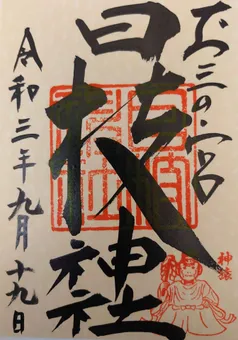 お三の宮
日枝神社
令和三年九月十九日
神猿